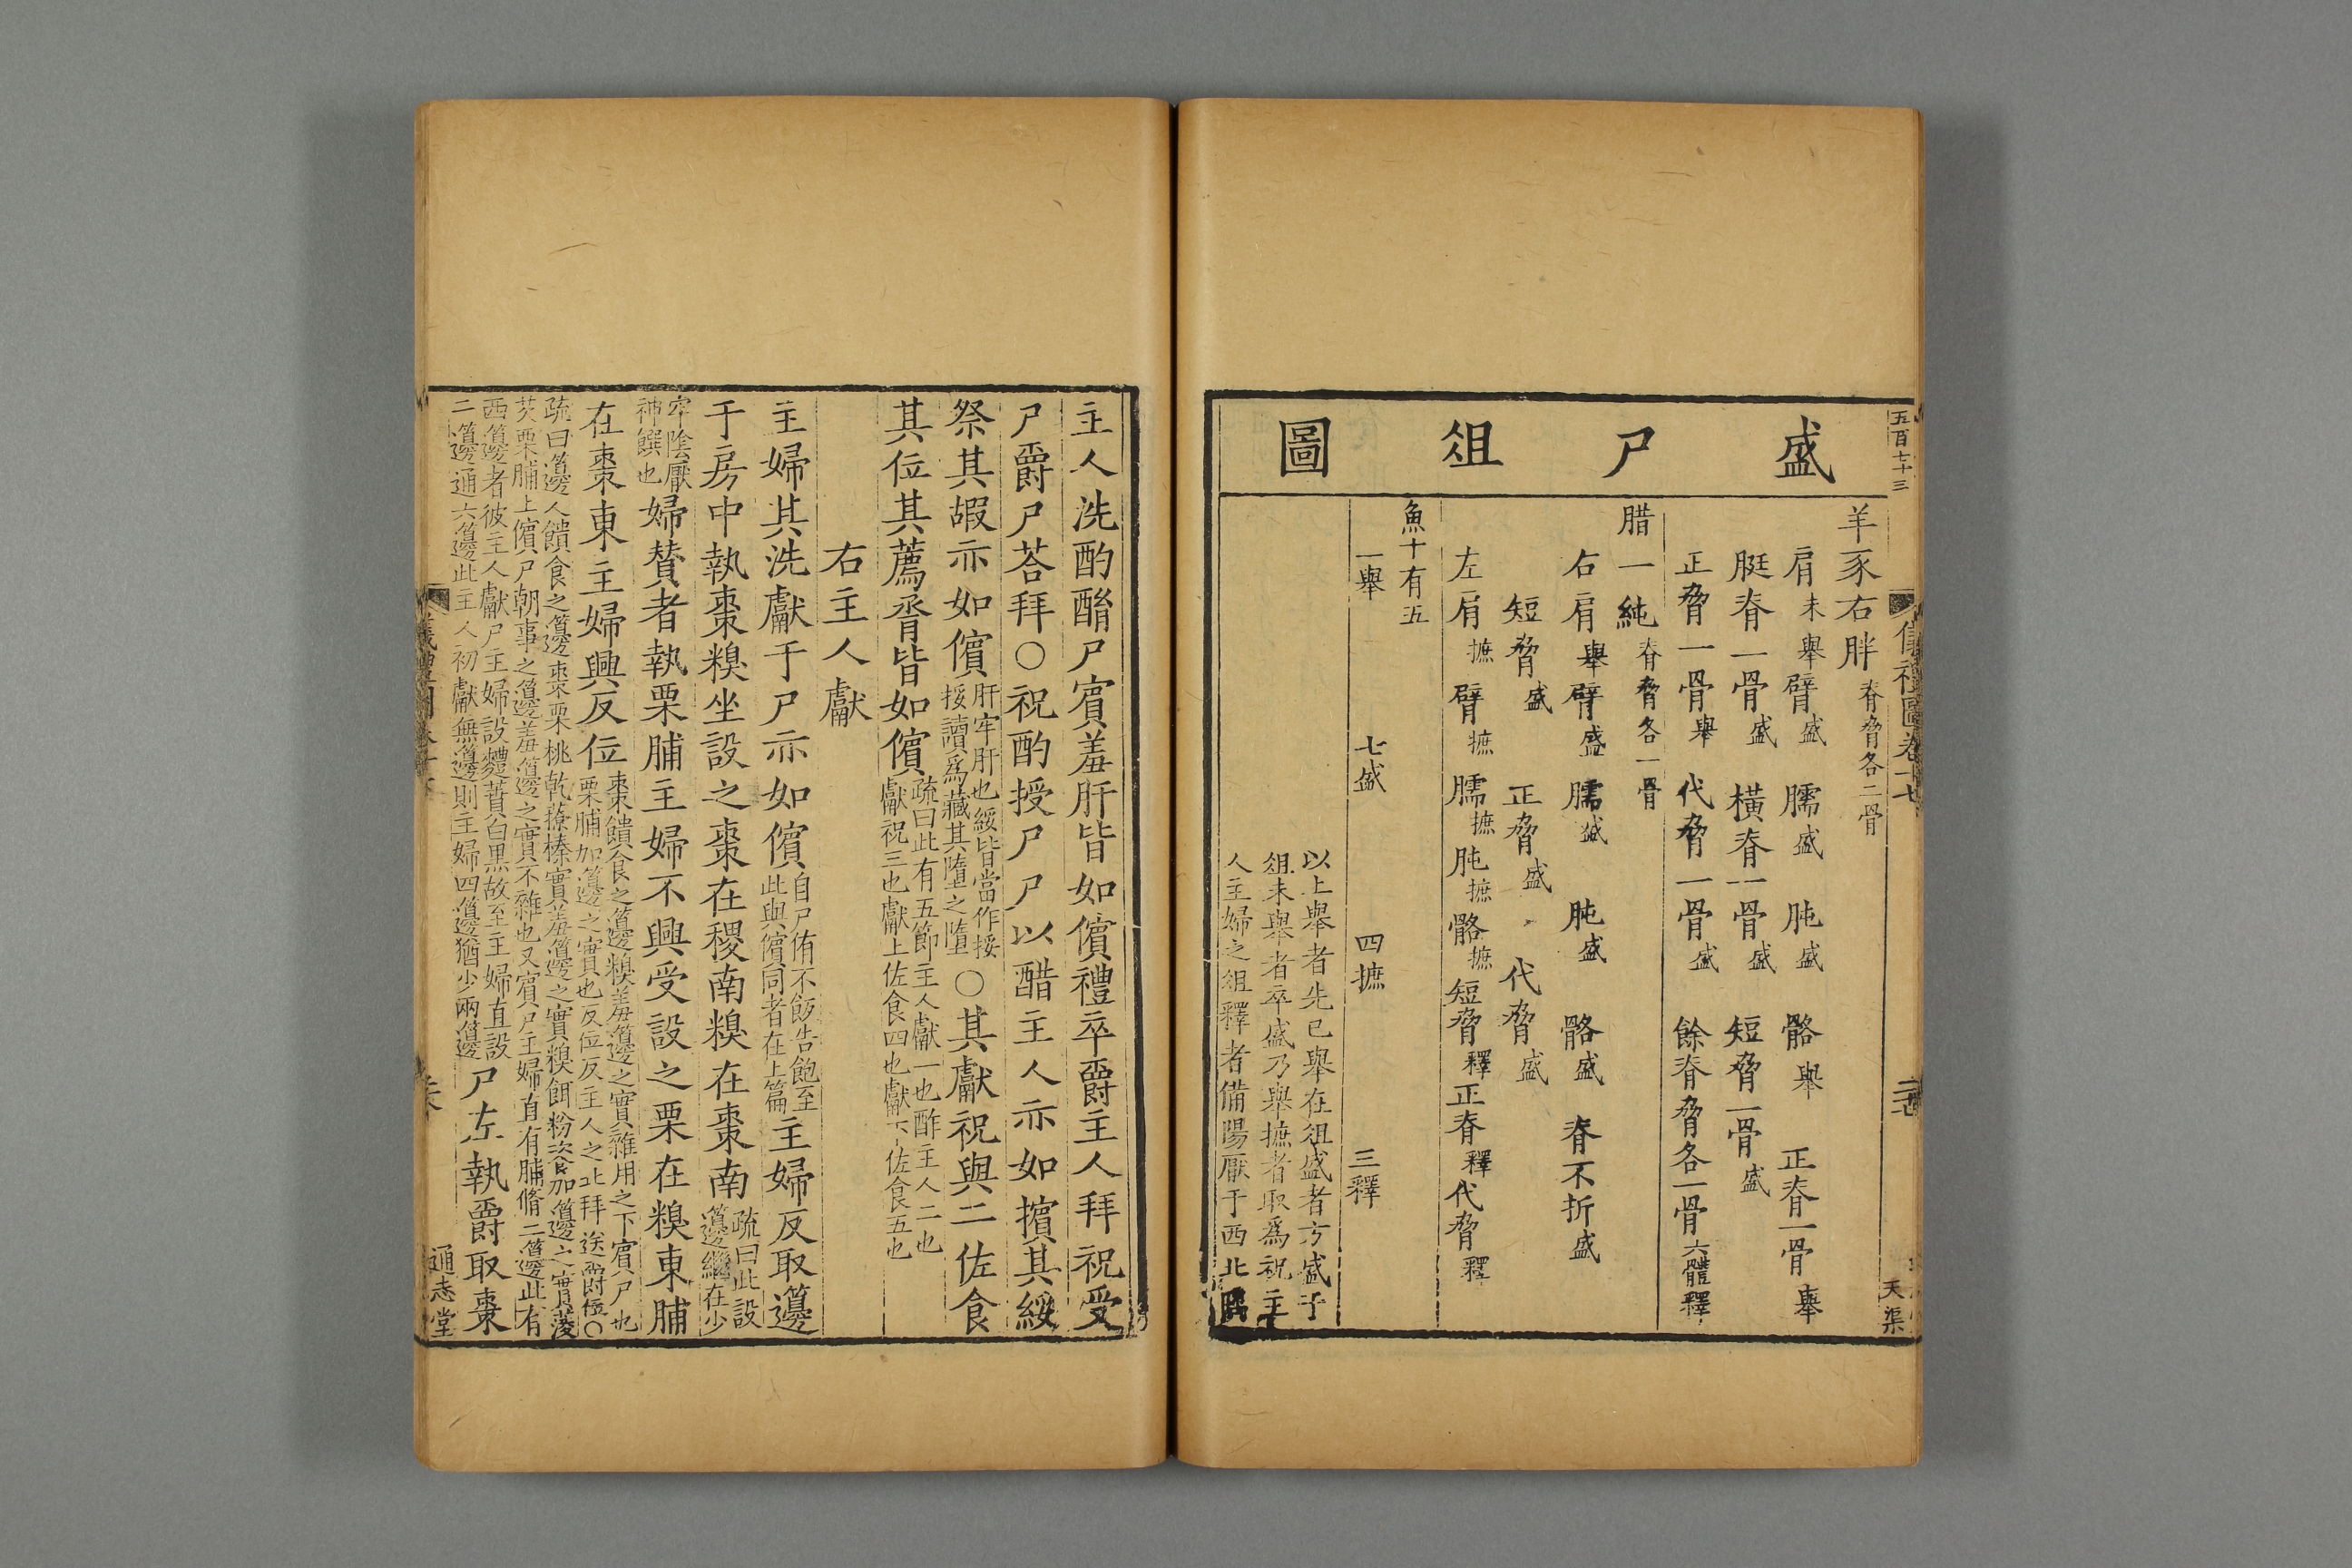 盛尸俎圖
五百七十三
羊豕右胖脊脅各二骨
肩未舉臂盛臑盛肫盛骼舉正脊一骨舉
脡脊一骨盛橫脊一骨盛短脅一骨盛
正脅一骨舉代脅一骨盛餘脊脅各一骨六體釋
腊一純脊脅各一骨
右肩舉臂盛臑盛肫盛骼盛脊不折盛
短脅盛正脅盛代脅盛
左肩摭臂摭臑摭肫摭骼摭短脅釋正脊釋代脅釋
魚十有五
一舉七盛四摭三釋
以上舉者先已舉在俎盛者方盛于
俎未舉者卒盛乃舉摭者取爲祝主
人主婦之俎釋者備陽厭于西北
儀禮圖卷十七
天渠
主人洗酌酳尸賓羞肝皆如儐禮卒爵主人拜祝受
尸爵尸荅拜○祝酌授尸尸以醋主人亦如擯其綏
祭其嘏亦如儐肝牢肝也綏皆當作挼挼讀爲藏其墮之墮○其獻祝與二佐食
其位其薦脀皆如儐疏曰此有五節主人獻一也酢主人二也獻祝三也獻上佐食四也獻下佐食五也
右主人獻
主婦其洗獻于尸亦如儐自尸侑不飯告飽至此與儐同者在上篇主婦反取籩
于房中執棗糗坐設之棗在稷南糗在棗南疏曰此設籩繼在少
牢陰厭神饌也婦贊者執栗脯主婦不興受設之栗在糗東脯
在棗東主婦興反位棗饋食之籩糗羞籩之實雜用之下賓尸也栗脯加籩之實也反位反主人之北拜送爵位○
疏曰籩人饋食之籩棗栗桃乾䕩榛實羞籩之實糗餌粉餈加籩之實菱
芡栗脯上儐尸朝事之籩羞籩之實不雜也又賓尸主婦直有脯脩二籩此有
西籩者彼主人獻尸主婦設麷蕡白黑故至主婦直設
二籩通六籩此主人初獻無籩則主婦四籩猶少兩籩尸左執爵取棗
通志堂